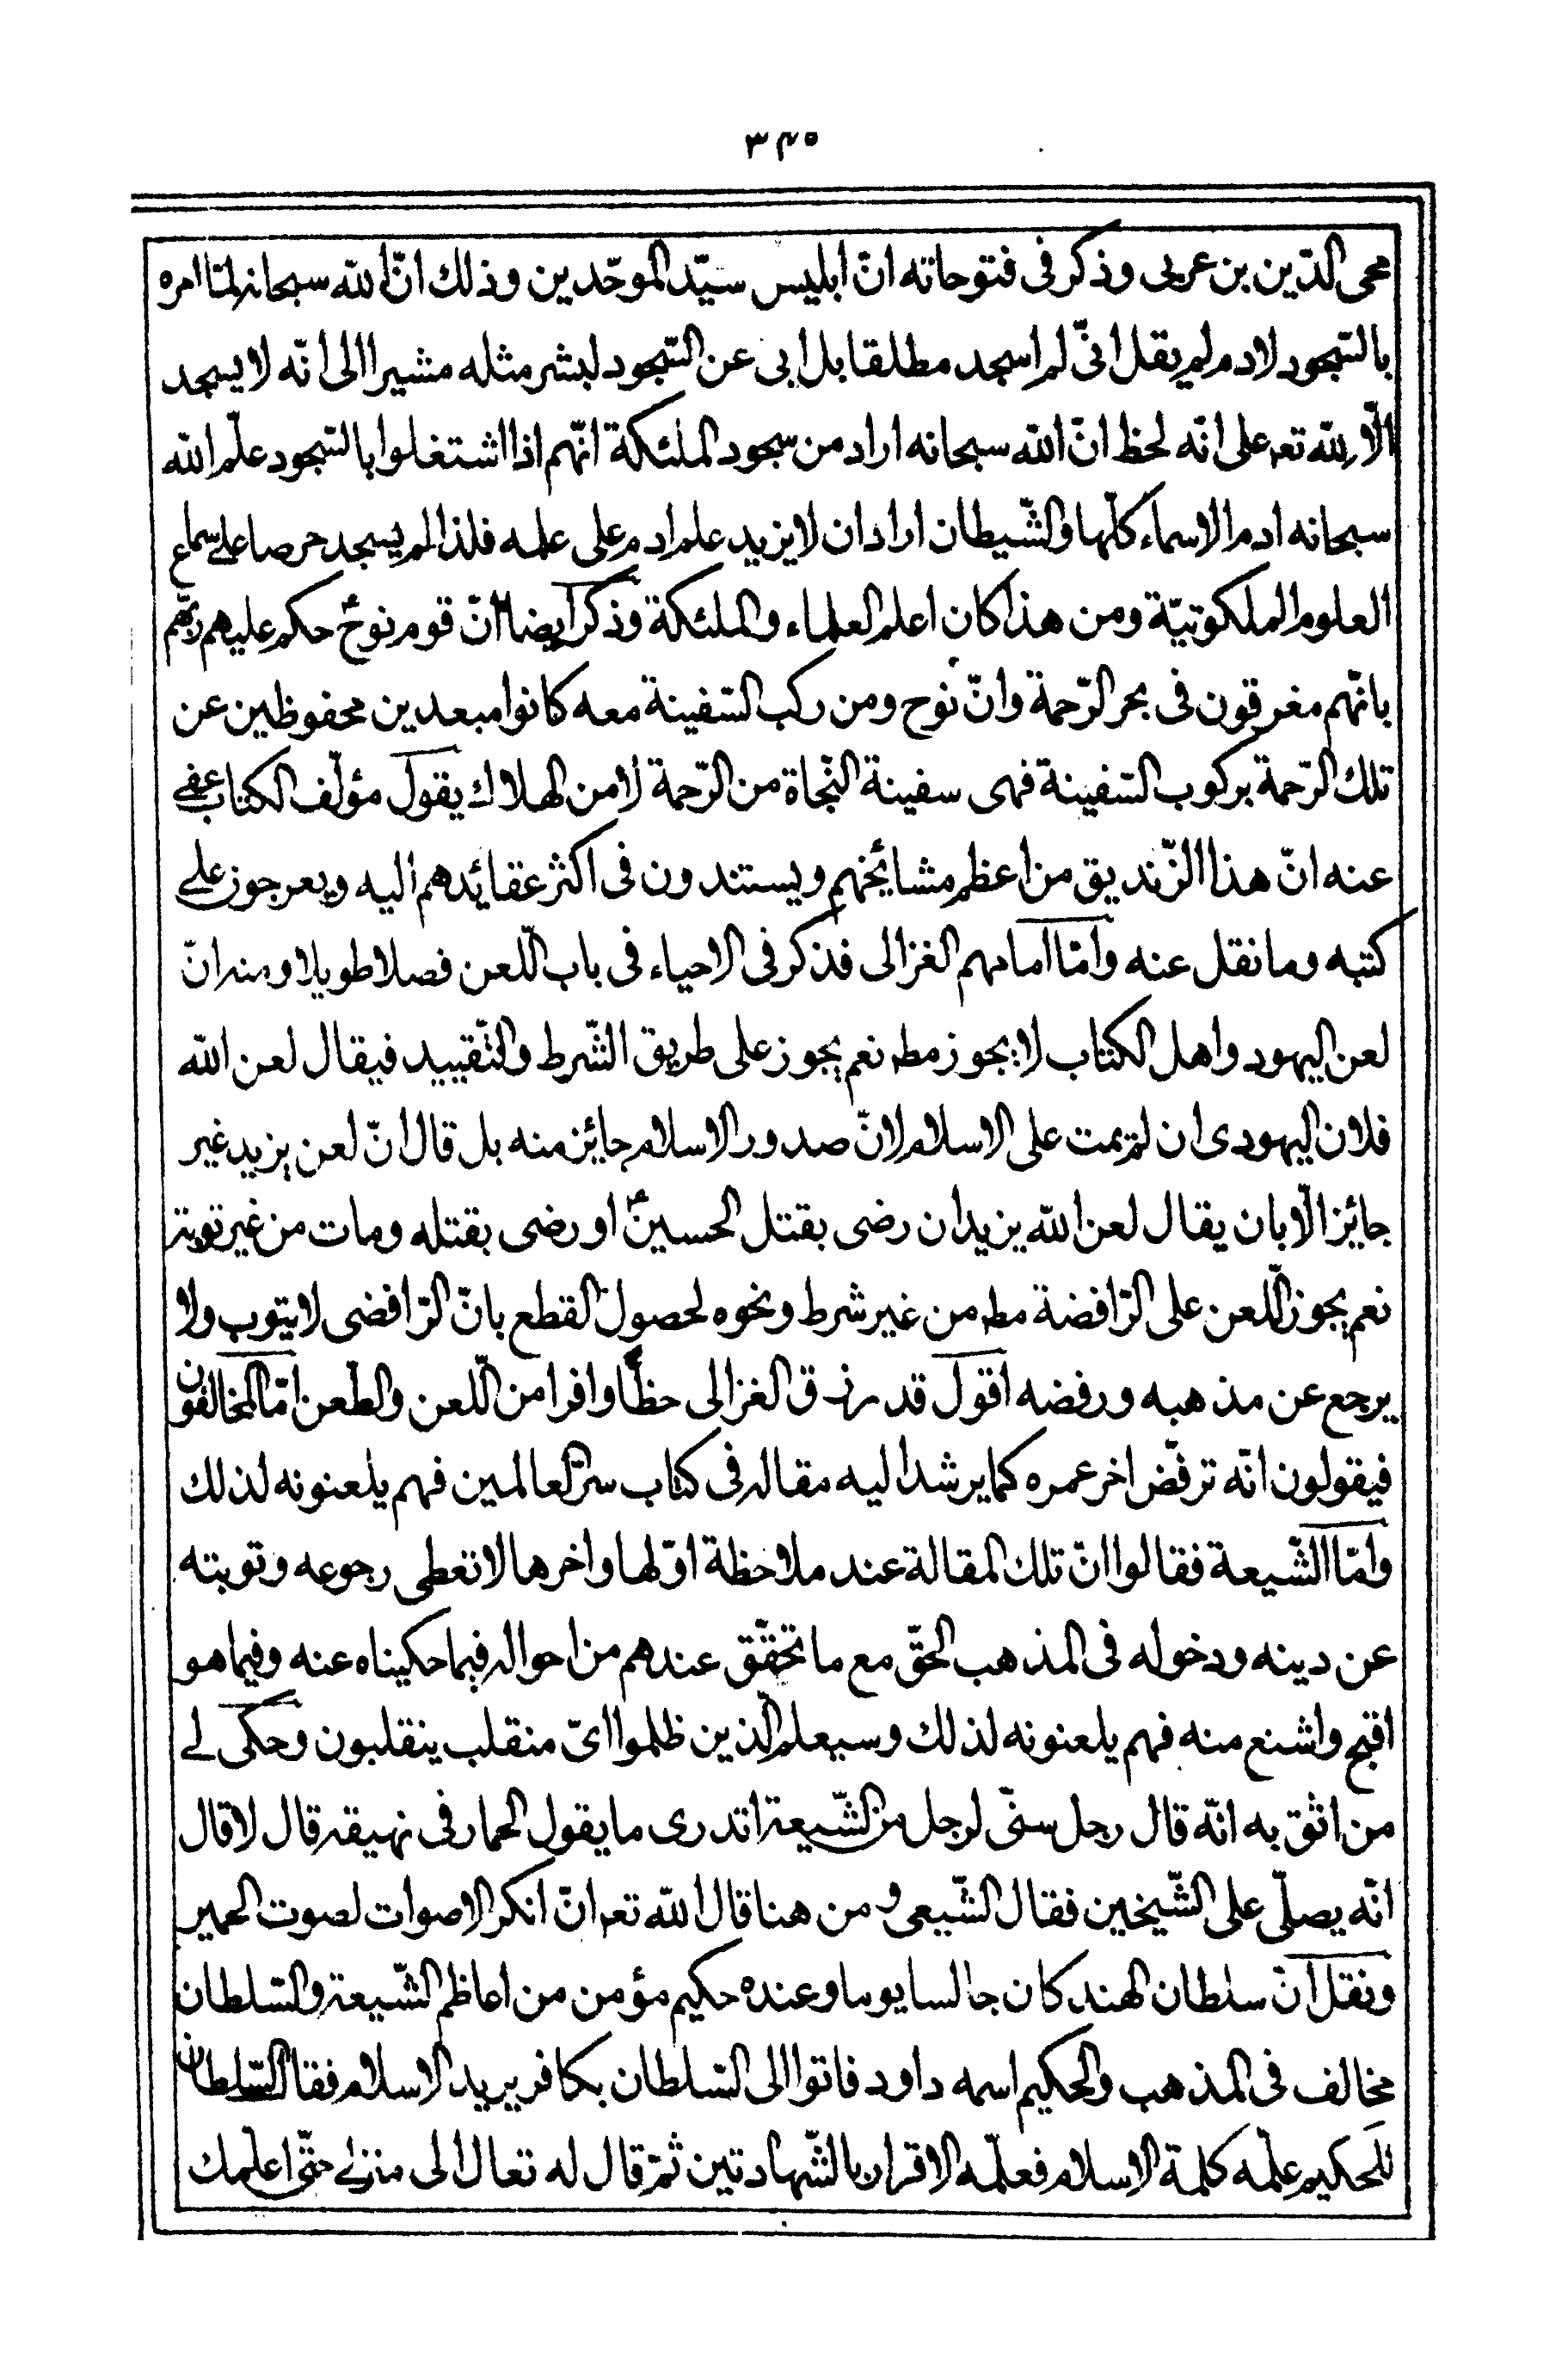 ٣٤٥
محى الدّين بن عربى وذكر فى فتوحاته انّ ابليس سيّد الموحّدين وذلك انّ الله سبحانه لمّا امره
بالسّجود لادم لم يقل انّى لم اسجد مطلقا بل ابى عن السّجود لبشر مثله مشيرا الى انّه لا يسجد
الّا لله تعه على انّه لحظ انّ الله سبحانه اراد من سجود الملئكة انّهم اذا اشتغلوا بالسّجود علّم الله
سبحانه ادم الاسماء كلّها والشّيطان اراد ان لا يزيد علم ادم على علمه فلذا لم يسجد حرصا على سماع
العلوم الملكوتيّة ومن هذا كان اعلم العلماء والملئكة وذكر ايضا انّ قوم نوحؑ حكم عليهم ربّهم
بانّهم مغرقون فى بحر الرّحمة وانّ نوح ومن ركب السّفينة معه كانوا مبعدين محفوظين عن
تلك الرّحمة بركوب السّفينة فهى سفينة النّجاة من الرّحمة لا من الهلاك يقول مؤلّف الكتاب عفى
عنه انّ هذا الزّنديق من اعظم مشائخهم ويستندون فى اكثر عقائدهم اليه ويعرجون على
كتبه وما نقل عنه وامّا امامهم الغزالى فذكر فى الاحياء فى باب اللّعن فصلا طويلا ومنه انّ
لعن اليهود واهل الكتاب لا يجوز مطه نعم يجوز على طريق الشّرط والتّقييد فيقال لعن الله
فلان اليهودى ان لم يمت على الاسلام لانّ صدور الاسلام جائز منه بل قال انّ لعن يزيد غير
جائز الّا بان يقال لعن الله يزيد ان رضى بقتل الحسينؑ او رضى بقتله ومات من غير توبة
نعم يجوز اللّعن على الرّافضة مطه من غير شرط ونحوه لحصول القطع بانّ الرّافضى لا يتوب ولا
يرجع عن مذهبه ورفضه اقول قد رزق الغزالى حظّا وافرا من اللّعن والطّعن امّا المخالفون
فيقولون انّه ترفّض اخر عمره كما يرشد اليه مقاله فى كتاب سرّ العالمين فهم يلعنونه لذلك
وامّا الشّيعة فقالوا انّ تلك المقالة عند ملاحظة اوّلها واخرها لا تعطى رجوعه وتوبته
عن دينه ودخوله فى المذهب الحقّ مع ما تحقّق عندهم من احواله فيما حكيناه عنه وفيما هو
اقبح واشنع منه فهم يلعنونه لذلك وسيعلم الّذين ظلموا اىّ منقلب ينقلبون وحكى لى
من اثق به انّه قال رجل سنّى لرجل من الشّيعة اتدرى ما يقول الحمار فى نهيقه قال لا قال
انّه يصلّى على الشّيخين فقال الشّيعى ومن هنا قال الله تعه انّ انكر الاصوات لصوت الحمير
ونقل انّ سلطان الهند كان جالسا يوما وعنده حكيم مؤمن من اعاظم الشّيعة والسّلطان
مخالف فى المذهب والحكيم اسمه داود فاتوا الى السّلطان بكافر يريد الاسلام فقال السّلطان
للحكيم علّمه كلمة الاسلام فعلّمه الاقرار بالشّهادتين ثمّ قال له تعال الى منزلى حتّى اعلّمك